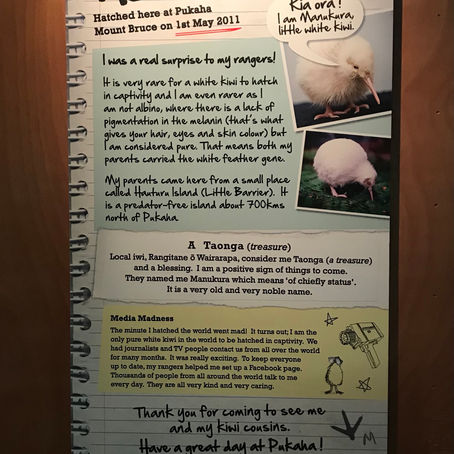 Hatched here at Pukaha
Mount Bruce on 1st May 2011
Kia ora!
I am Manukura,
little white kiwi.
I was a real surprise to my rangers!
It is very rare for a white kiwi to hatch
in captivity and I am even rarer as I
am not albino, where there is a lack of
pigmentation in the melanin (that's what
gives your hair, eyes and skin colour) but
I am considered pure. That means both my
parents carried the white feather gene.
My parents came here from a small place
called Hauturu Island (Little Barrier). It
is a predator-free island about 700kms
north of Pukaha
A Taonga (treasure)
Local iwi, Rangitane ō Wairarapa, consider me Taonga (a treasure)
and a blessing. I am a positive sign of things to come.
They named me Manukura which means 'of chiefly status'.
It is a very old and very noble name.
Media Madness
The minute I hatched the world went mad! It turns out; I am the
only pure white kiwi in the world to be hatched in captivity. We
had journalists and TV people contact us from all over the world
for many months. It was really exciting. To keep everyone
up to date, my rangers helped me set up a Facebook page.
Thousands of people from all around the world talk to me
every day. They are all very kind and very caring.
Thank you for coming to see me
and my kiwi cousins.
Have a great day at Pukaha!
M